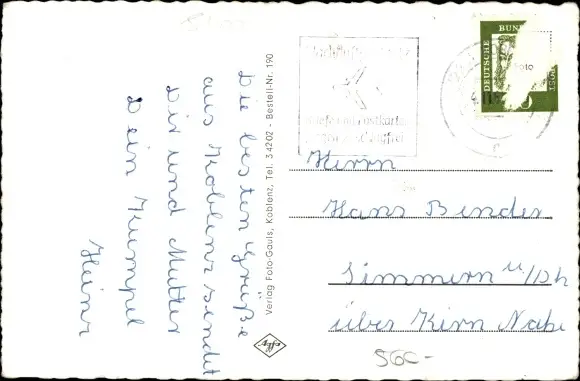 Die besten Grüße
aus Koblenz sendet
Dir und Mutter
Dein Kumpel
Heinz
Verlag Foto-Gauls, Koblenz, Tel. 34202 - Bestell-Nr. 190
Briefe und Postkarten
DEUTSCHE BUN
POST
Herrn
Hans Bender
Simmern u/Dh
über Kirn Nahe
560-